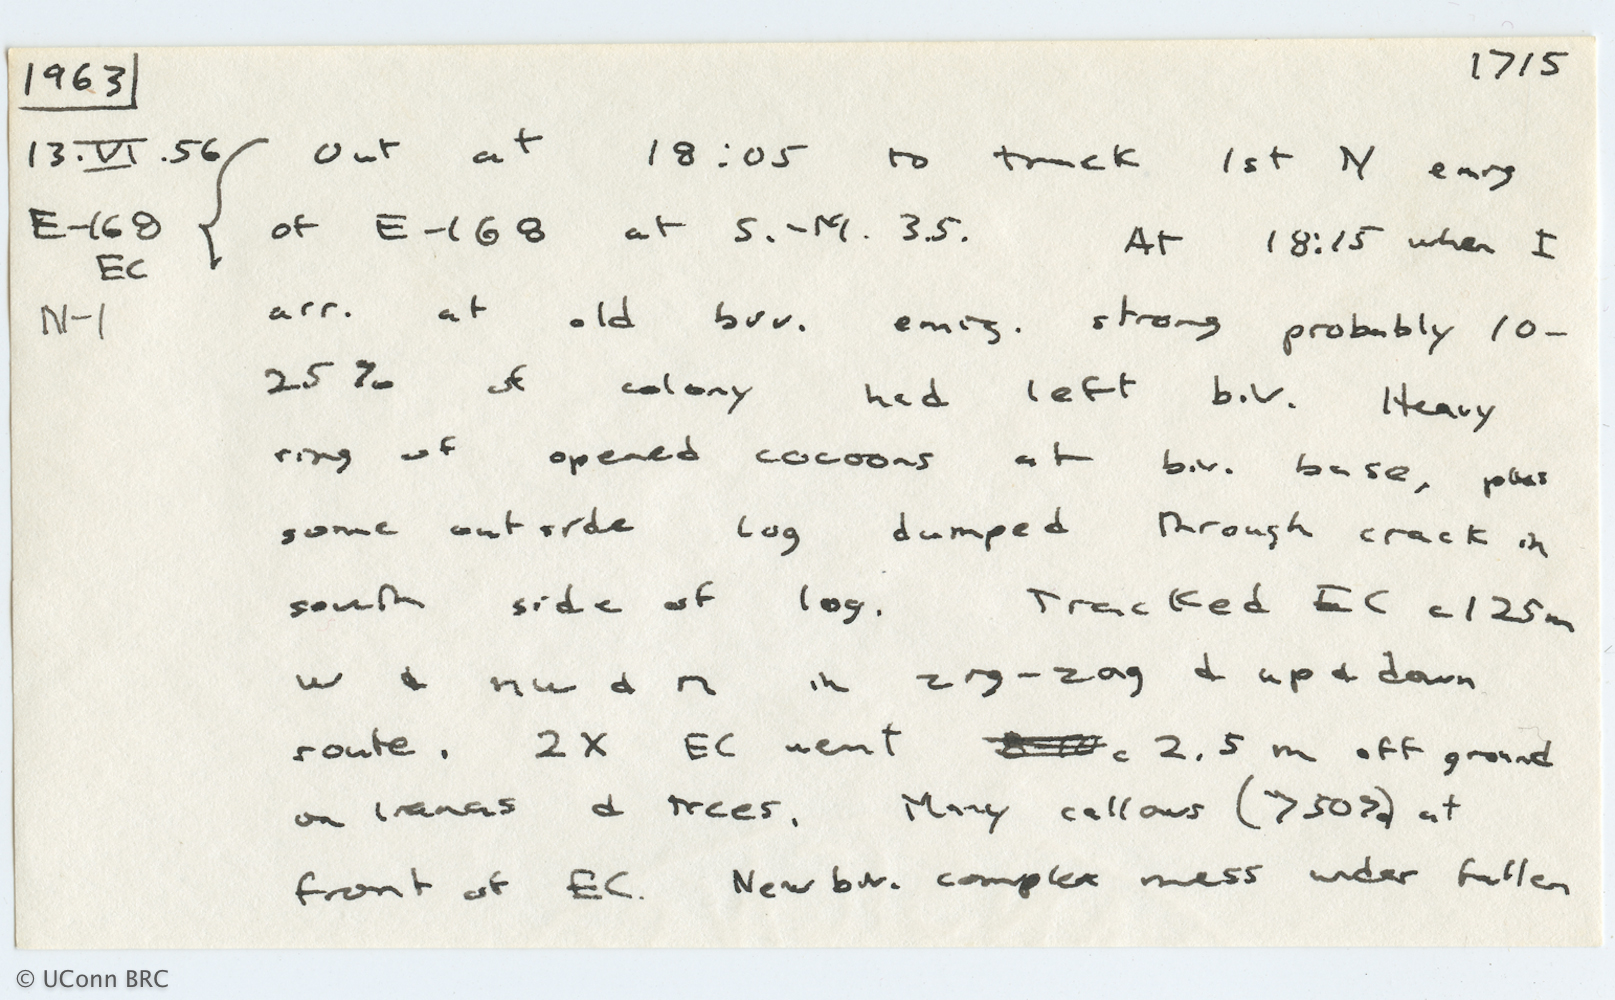 1963 1715
13.VI.56 Out at 18:05 to track 1st N emig
E-168 of E-168 at S.-M. 3.5. At 18:15 when I
EC
N-1 arr. at old biv. emig. strong probably 10-
25% of colony had left biv. Heavy
ring of opened cocoons at biv. base, plus
some outside log dumped through crack in
south side of log. Tracked EC c 125m
w & nw & n in zig-zag & up & down
route. 2X EC went c 2.5 m off ground
on lianas & trees. Many callows (>50%) at
front of EC. New biv. complex mess under fallen
© UConn BRC